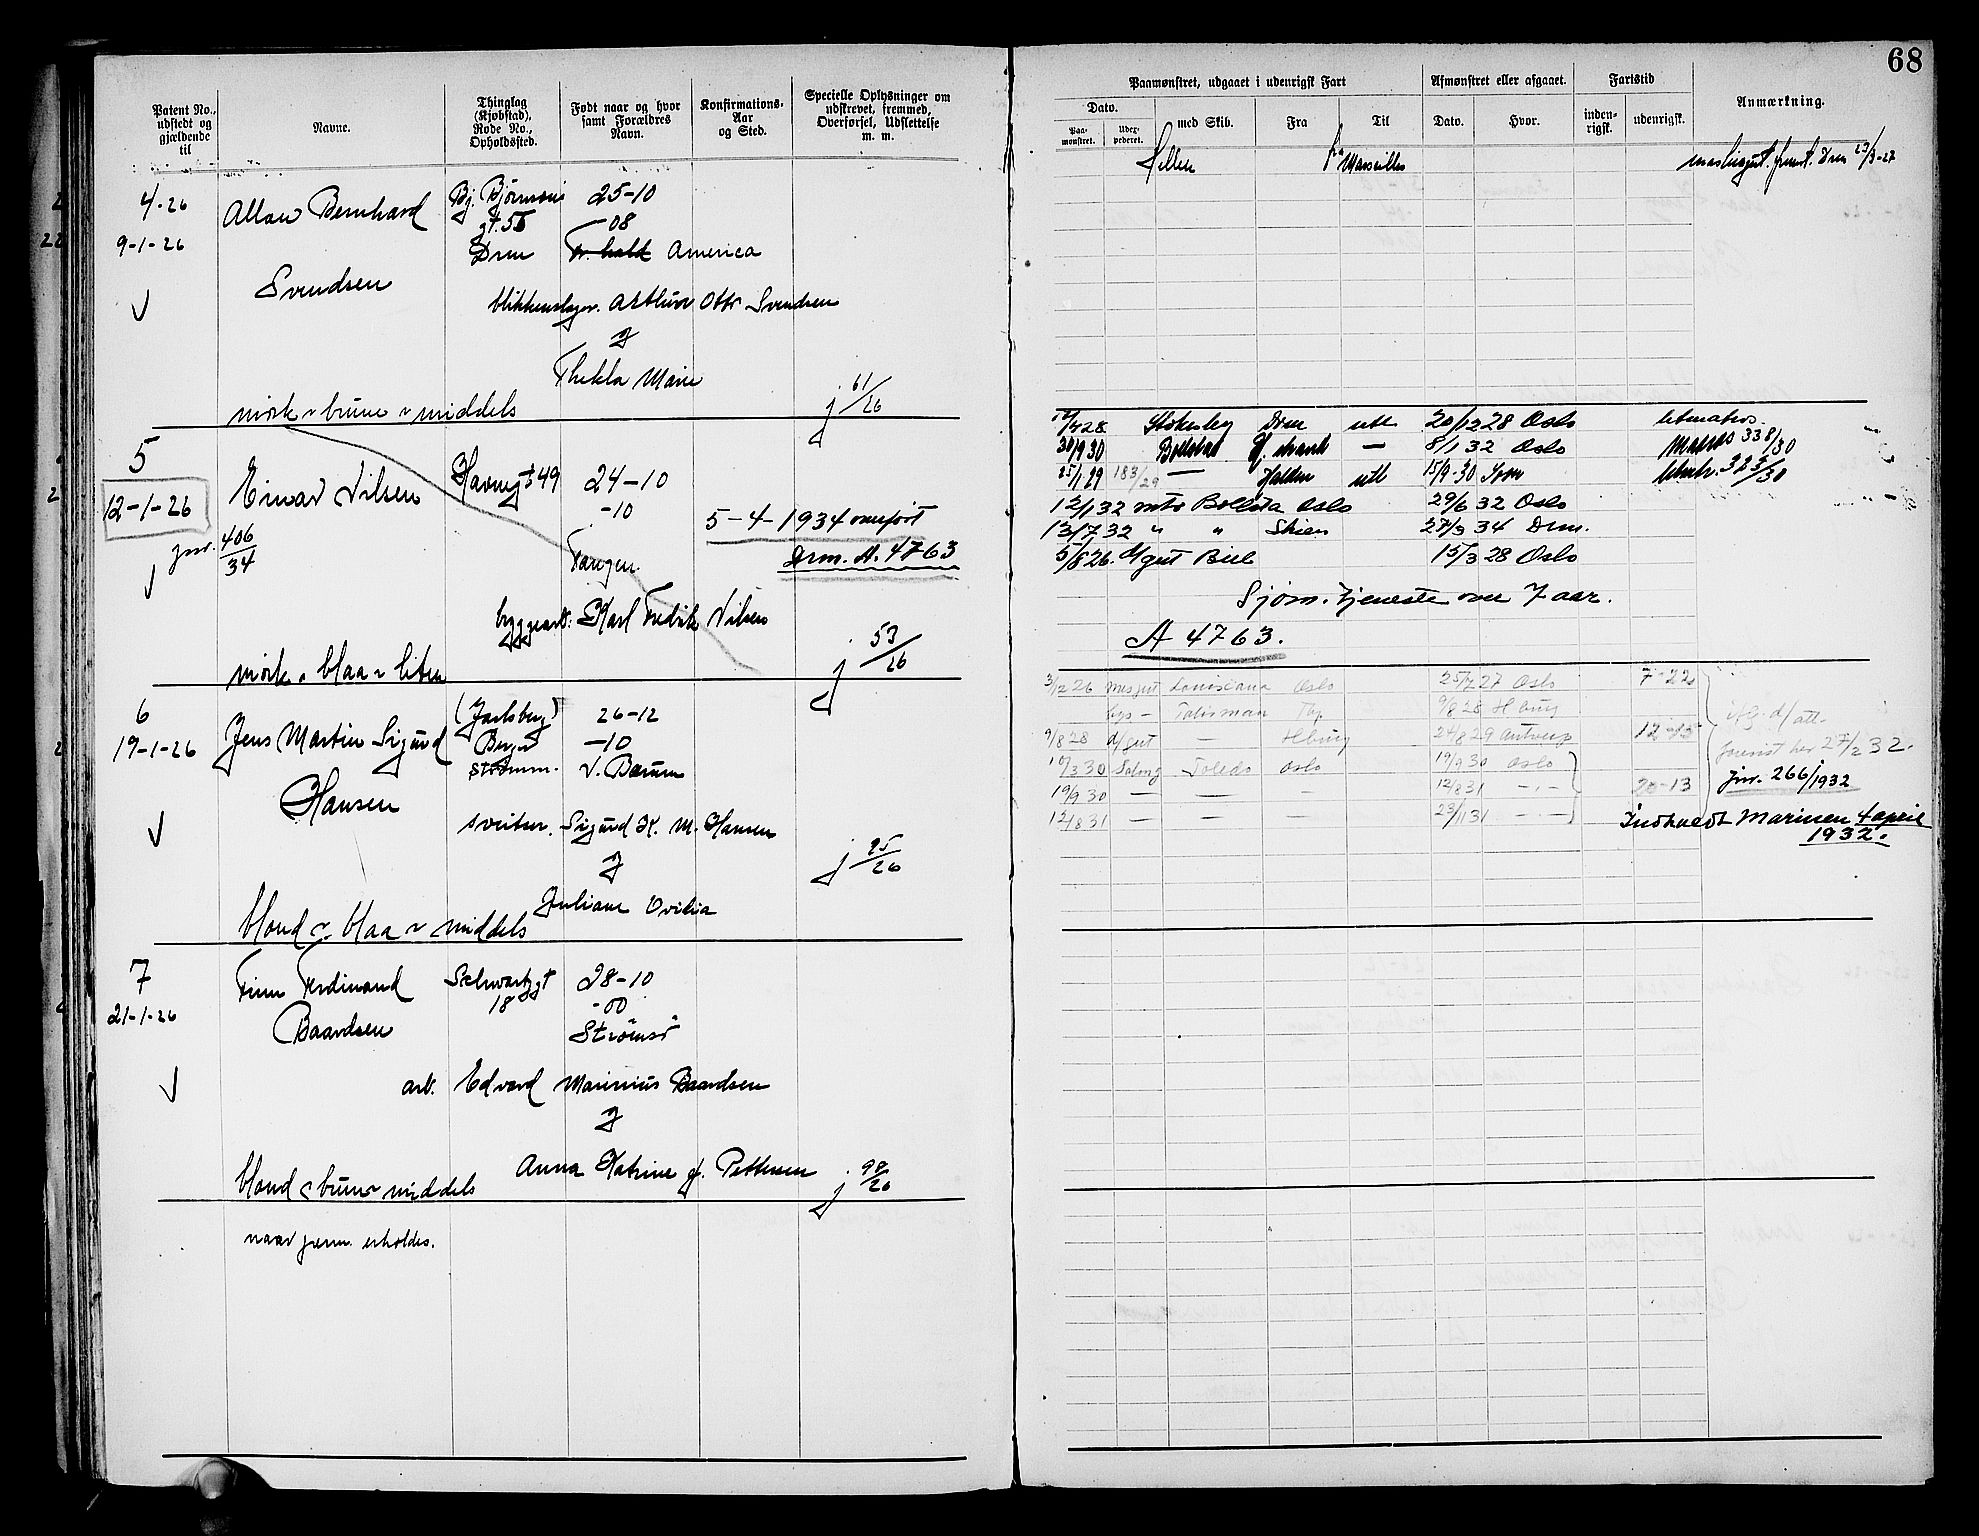 68
Patent No., udstedt og gjældende til
Navne.
Thinglag (Kjøbstad), Rode No., Opholdssted.
Født naar og hvor samt Forældres Navn.
Konfirmations-Aar og Sted.
Specielle Oplysninger om udskrevet, fremmed, Overførsel, Udslettelse m. m.
Paamønstret, udgaaet i udenrigsk Fart
Afmønstret eller afgaaet.
Fartstid
Anmærkning.
Dato.
Paa-mønstret.
Udex-pederet.
med Skib.
Fra
Til
Dato.
Hvor.
inden-rigsk.
udenrigsk.
4-26
Allan Bernhard
Bj. Bjørnsons
25-10
gt. 55
-08
9-1-26
Drm
America
Svendsen
Arthur Otto Svendsen
Thekla Marie
mørk brune middels
j 61/26
Marseilles
5
12-1-26
Einar Nilsen
Havnegt 49
24-10
-10
5-4-1934 overført
jnr. 406/34
Tangen
Drm. A. 4763
Karl Fredrik Nilsen
mørk blaa liten
j 53/26
Drm utl 20/12 28 Oslo letmatros
30/9 30 8/1 32 Oslo Matros 338/30
25/1 29 183/29 — Halden utl 15/9-30
12/1 32 mtr Bollsta Oslo 29/6 32 Oslo
13/7 32 " " Skien 27/3 34 Drm.
5/8 26. d/gut 15/3 28 Oslo
Sjøm. tjeneste over 7 aar.
A 4763.
6
19-1-26
Jens Martin Sigurd
(Jarlsberg)
26-12
Berger
-10
Strømm.
V. Bærum
Hansen
Sigurd K. M. Hansen
Juliane Ovidia
blond blaa middels
j 95/26
3/12 26 Louisiana Oslo 25/7 27 Oslo 7-22
Talisman 9/8 28 Hburg
9/8 28 d/gut — Hburg 24/8 29 Antverp
10/3 30 Toledo Oslo 19/9 30 Oslo
19/9 30 — — — 12/8 31 - 20-13
12/8 31 — — — 23/1 31 -
27/2 32.
Jnr. 266/1932
Marinen 4 april
1932.
7
21-1-26
Finn Ferdinand
Schwartzgt
28-10
18
-00
Baardsen
Strømsø
arb. Edvard Marinius Baardsen
Anna Katrine f. Pettersen
blond brune middels
j 98/26
naar erholdes.